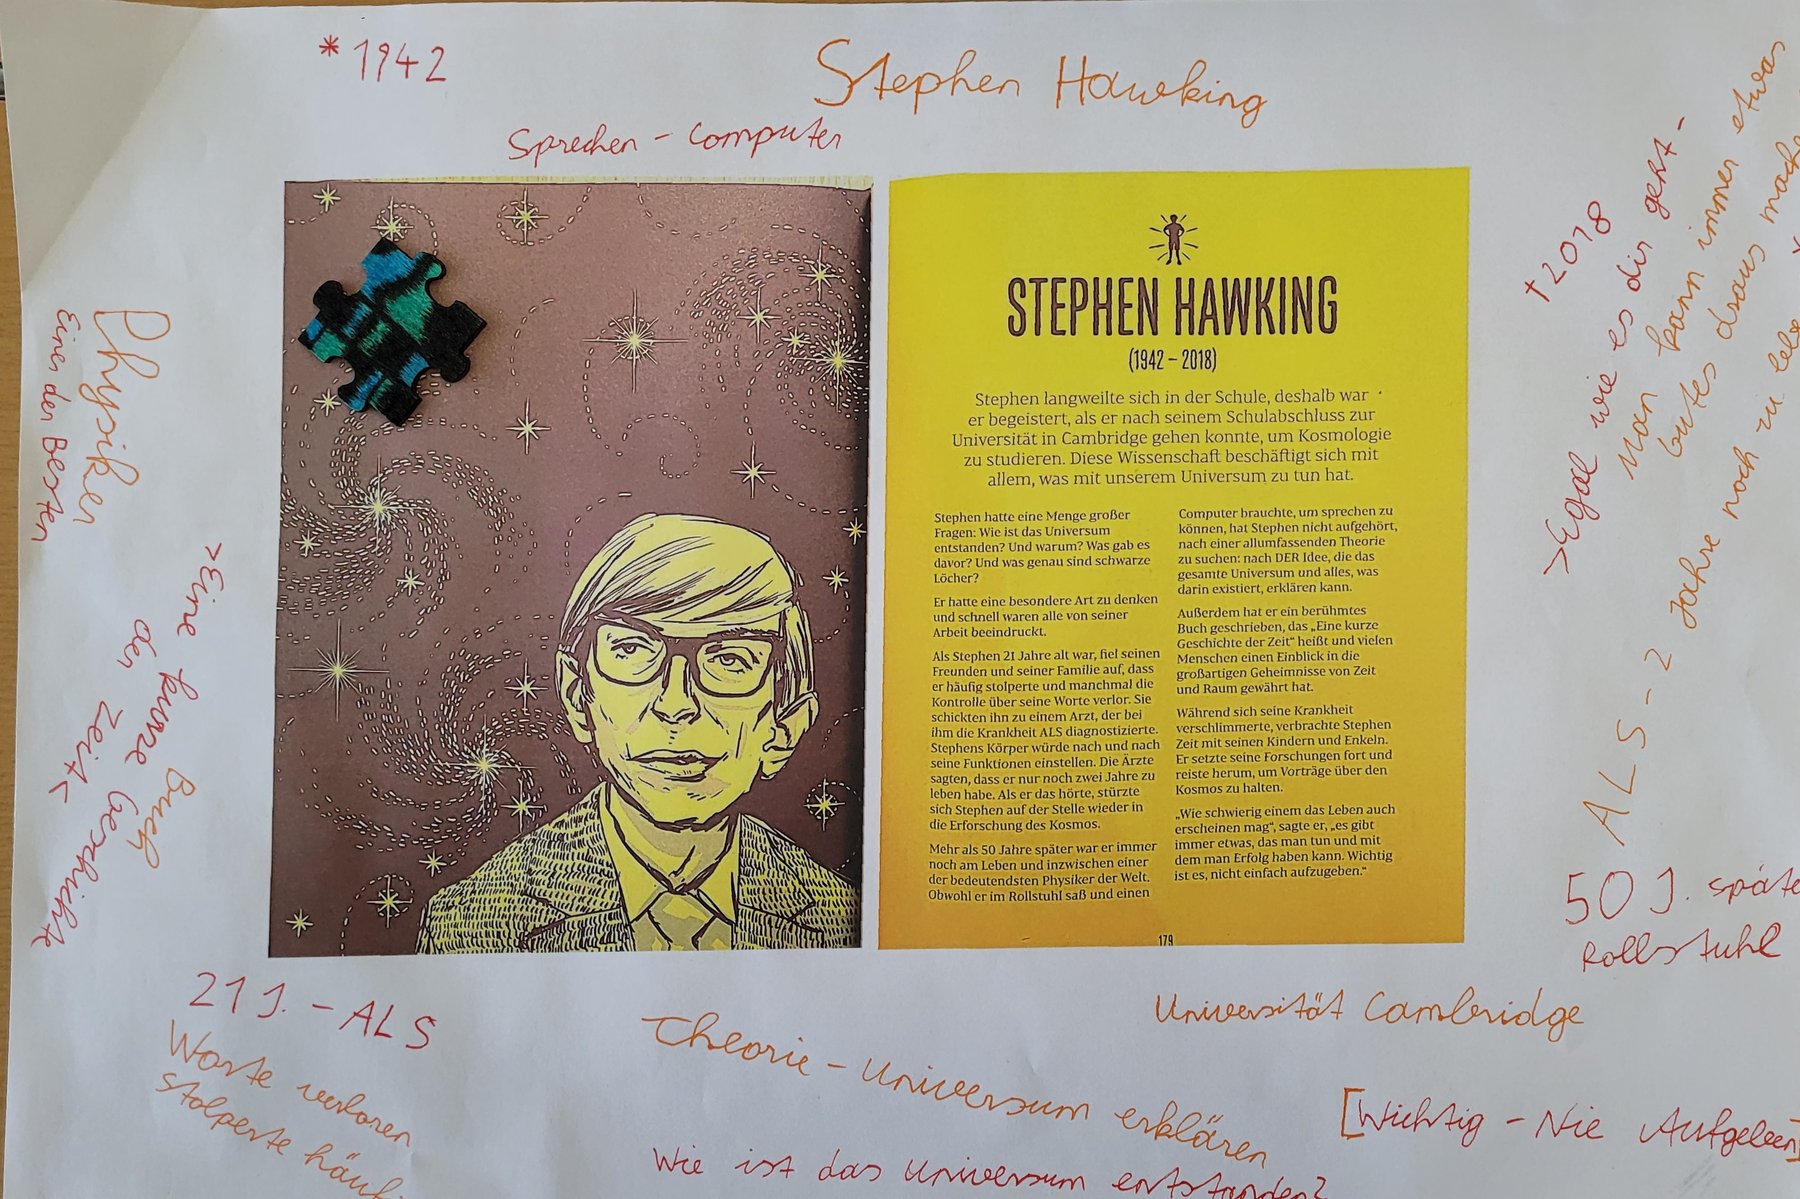 *1942
Stephen Hawking
Sprechen - Computer
Physiker
Einer der Besten
>Eine kurze Geschichte
der Zeit<
Buch
STEPHEN HAWKING
(1942 – 2018)
Stephen langweilte sich in der Schule, deshalb war
er begeistert, als er nach seinem Schulabschluss zur
Universität in Cambridge gehen konnte, um Kosmologie
zu studieren. Diese Wissenschaft beschäftigt sich mit
allem, was mit unserem Universum zu tun hat.
Stephen hatte eine Menge großer
Fragen: Wie ist das Universum
entstanden? Und warum? Was gab es
davor? Und was genau sind schwarze
Löcher?
Er hatte eine besondere Art zu denken
und schnell waren alle von seiner
Arbeit beeindruckt.
Als Stephen 21 Jahre alt war, fiel seinen
Freunden und seiner Familie auf, dass
er häufig stolperte und manchmal die
Kontrolle über seine Worte verlor. Sie
schickten ihn zu einem Arzt, der bei
ihm die Krankheit ALS diagnostizierte.
Stephens Körper würde nach und nach
seine Funktionen einstellen. Die Ärzte
sagten, dass er nur noch zwei Jahre zu
leben habe. Als er das hörte, stürzte
sich Stephen auf der Stelle wieder in
die Erforschung des Kosmos.
Mehr als 50 Jahre später war er immer
noch am Leben und inzwischen einer
der bedeutendsten Physiker der Welt.
Obwohl er im Rollstuhl saß und einen
Computer brauchte, um sprechen zu
können, hat Stephen nicht aufgehört,
nach einer allumfassenden Theorie
zu suchen: nach DER Idee, die das
gesamte Universum und alles, was
darin existiert, erklären kann.
Außerdem hat er ein berühmtes
Buch geschrieben, das „Eine kurze
Geschichte der Zeit“ heißt und vielen
Menschen einen Einblick in die
großartigen Geheimnisse von Zeit
und Raum gewährt hat.
Während sich seine Krankheit
verschlimmerte, verbrachte Stephen
Zeit mit seinen Kindern und Enkeln.
Er setzte seine Forschungen fort und
reiste herum, um Vorträge über den
Kosmos zu halten.
„Wie schwierig einem das Leben auch
erscheinen mag“, sagte er, „es gibt
immer etwas, das man tun und mit
dem man Erfolg haben kann. Wichtig
ist es, nicht einfach aufzugeben.“
179
†2018
>Egal wie es dir geht -
Man kann immer etwas
Gutes draus
ALS - 2 Jahre noch zu
50 J. späte
Rollstuhl
21 J. - ALS
Worte verloren
stolperte
Theorie - Universum erklären
Wie ist das Universum entstanden?
Universität Cambridge
[Wichtig - Nie Aufgeben]